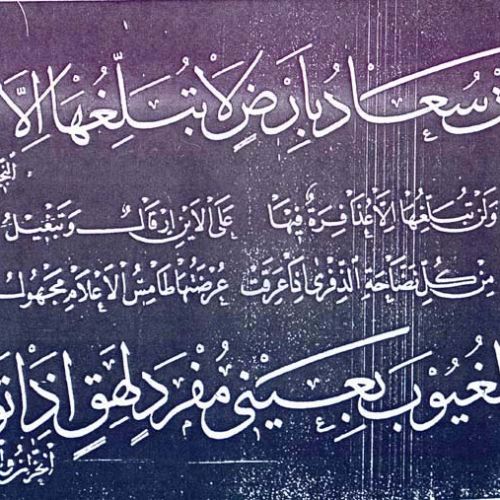 سُعَادُ بِأَرْضٍ لَا تُبَلِّغُهَا إِلَّا
وَلَنْ تُبَلِّغَهَا إِلَّا عُذَافِرَةٌ فِيهَا عَلَى الْأَيْنِ إِرْقَالٌ وَتَبْغِيلُ
مِنْ كُلِّ نَضَّاخَةِ الذِّفْرَى إِذَا عَرِقَتْ عُرْضَتُهَا طَامِسُ الْأَعْلَامِ مَجْهُولُ
الْغُيُوبَ بِعَيْنَيْ مُفْرَدٍ لَهِقٍ إِذَا